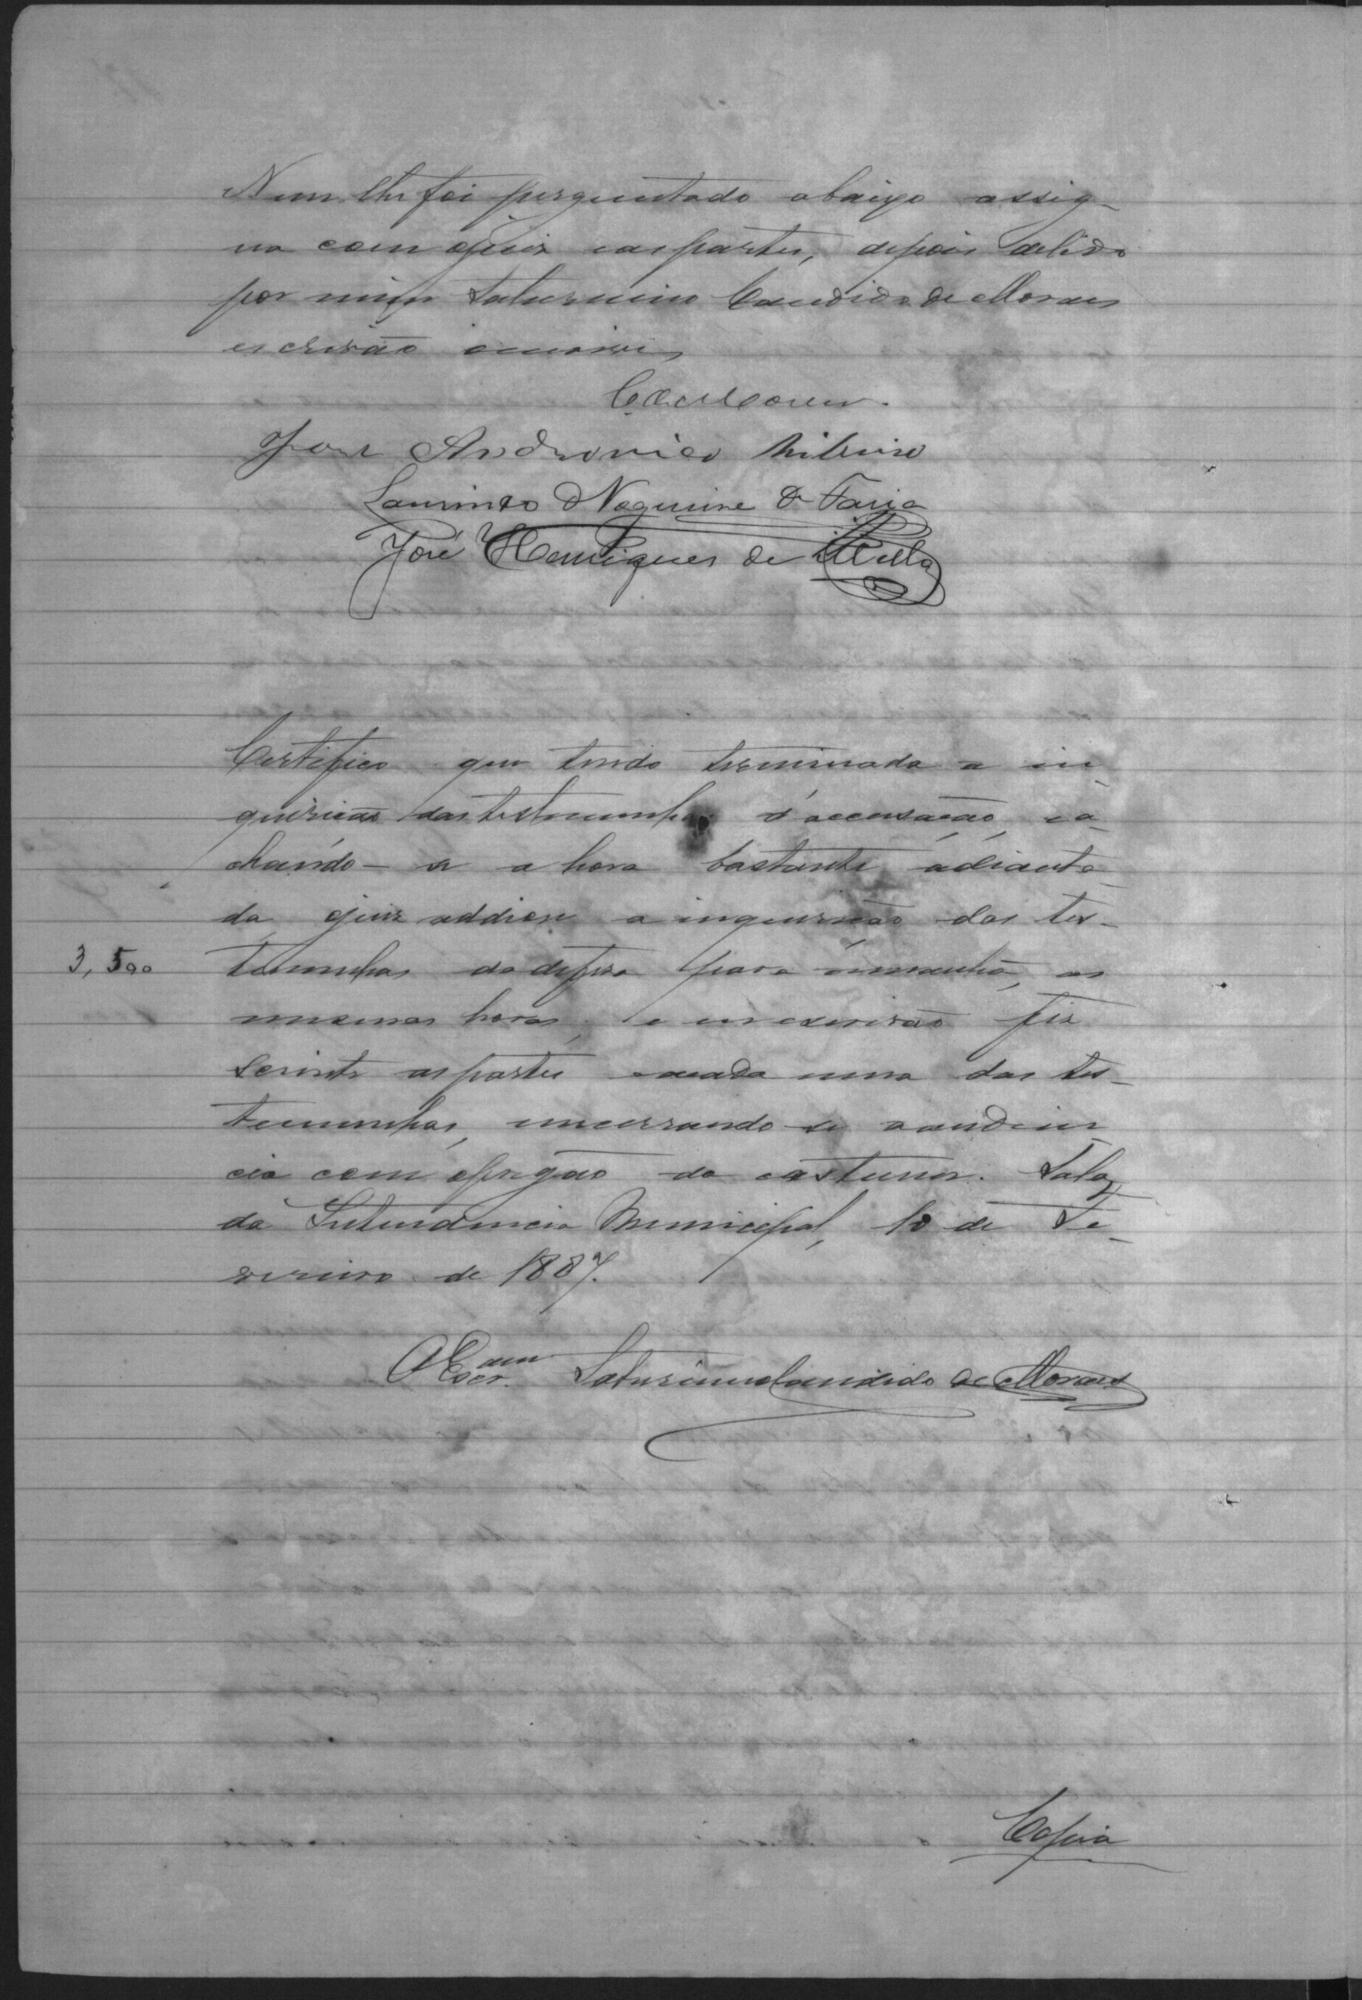 Nem lhe foi perguntado abaixo assig-
na com o juiz e as partes, depois de lido
por mim Saturnino Candido de Moraes
escrivão o escrevi
José Andronico Ribeiro
Lourenço Nogueira de Faria
José Henriques de Mello
Certifico que tendo terminada a in
quirição das testemunhas d'accusação, e a
chando-se a hora bastante adianta
da o juiz addiou a inquirição das tes-
3,500
temunhas da defeza para amanhã, as
mesmas horas, e eu escrivão fiz
sciente as partes e a cada uma das tes-
temunhas, encerrando-se a audien
cia com o pregão do costume. Sala
da Intendencia Municipal, 10 de Fe-
vereiro de 1887.
O Escr.am Saturnino Candido de Moraes
Copia